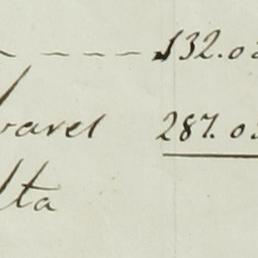 - - - - 132.0
varel 287.03
lta